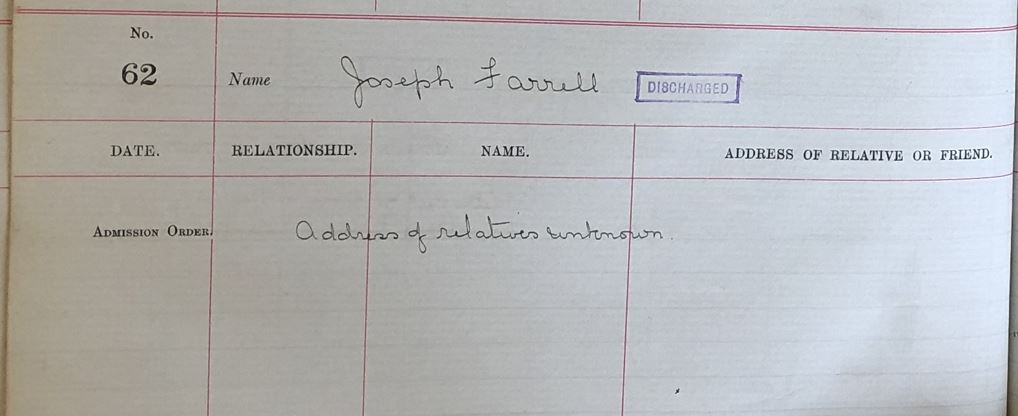 No.
62 Name Joseph Farrell DISCHARGED
DATE. RELATIONSHIP. NAME. ADDRESS OF RELATIVE OR FRIEND.
ADMISSION ORDER. Address of relatives unknown.